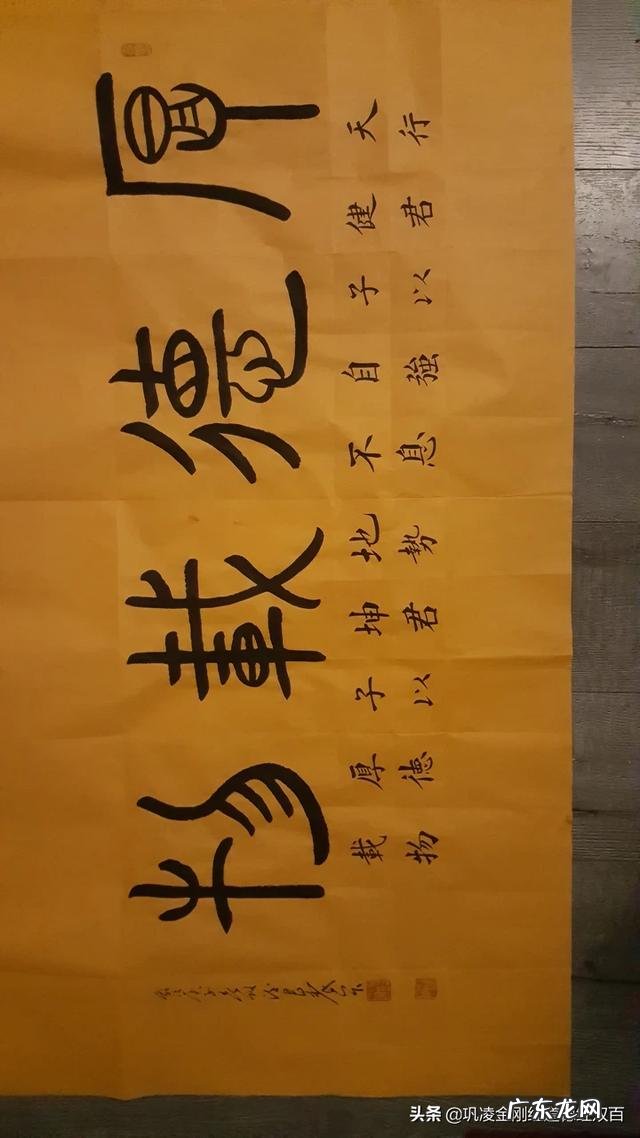 厚德載物
天行
健君
子以
自強
不息
地势
坤君
子以
厚德
載物
头条 @巩凌金刚经道德经双百
广东龙网